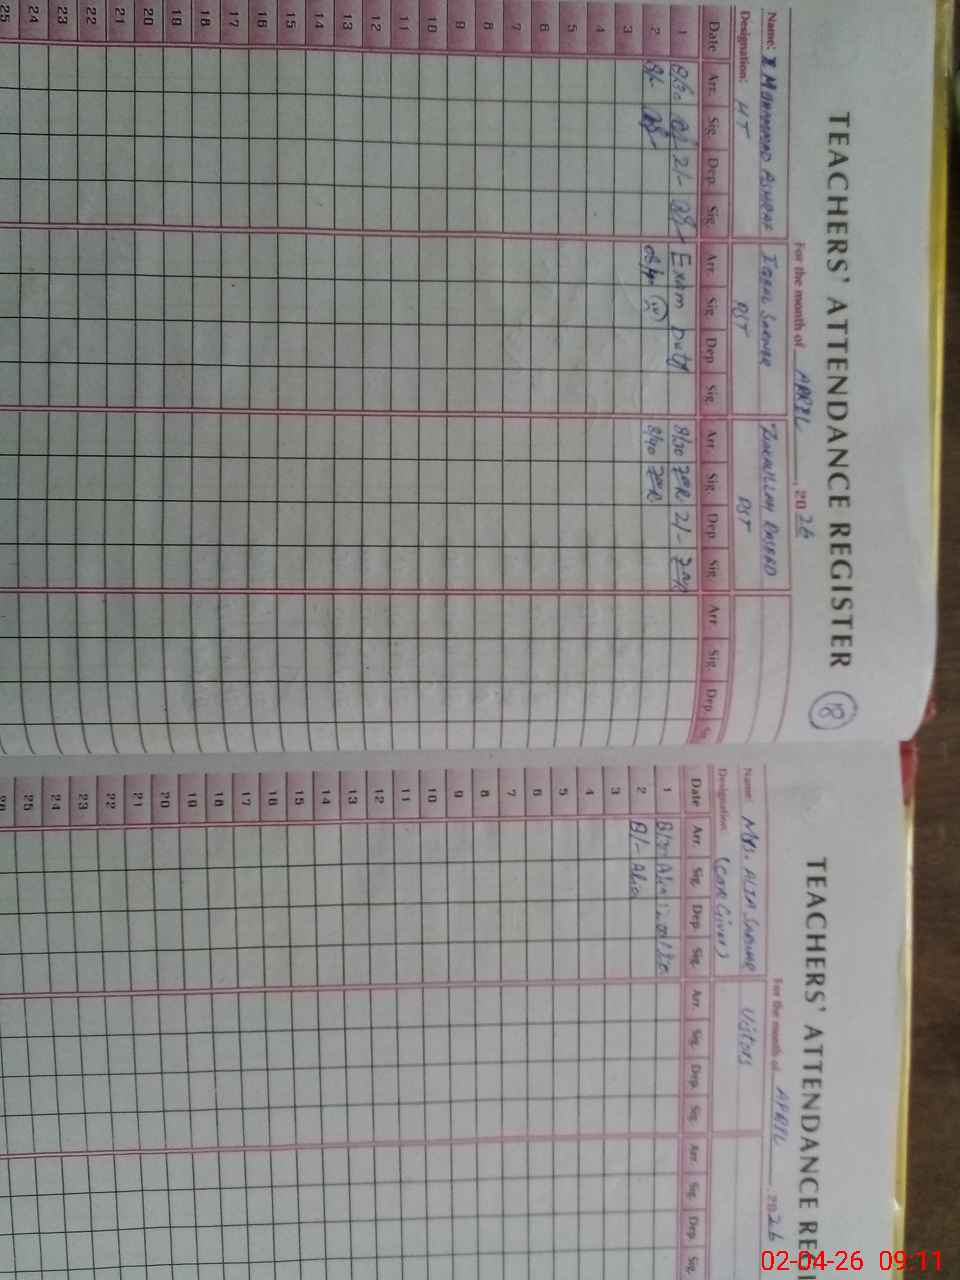 TEACHERS' ATTENDANCE REGISTER
18
For the month of APRIL, 2026
Name: MUHAMMAD ASHRAF IQBAL SARWAR ZIAULLAH RASEED
Designation: HT PST PST
Date Arr. Sig. Dep. Sig. Arr. Sig. Dep. Sig. Arr. Sig. Dep. Sig. Arr. Sig. Dep. Sig.
1 8/30 2/- Exam Duty 8/30 2/-
2 8/- 8/40
3
4
5
6
7
8
9
10
11
12
13
14
15
16
17
18
19
20
21
22
23
24
25
TEACHERS' ATTENDANCE REGI
For the month of APRIL, 2026
Name: Mrs. ALIA Visitors
Designation: (Care Giver)
Date Arr. Sig. Dep. Sig. Arr. Sig. Dep. Sig. Arr. Sig. Dep. Sig.
1 Alia
2 8/- Alia
3
4
5
6
7
8
9
10
11
12
13
14
15
16
17
18
19
20
21
22
23
24
25
26
02-04-26 09:11